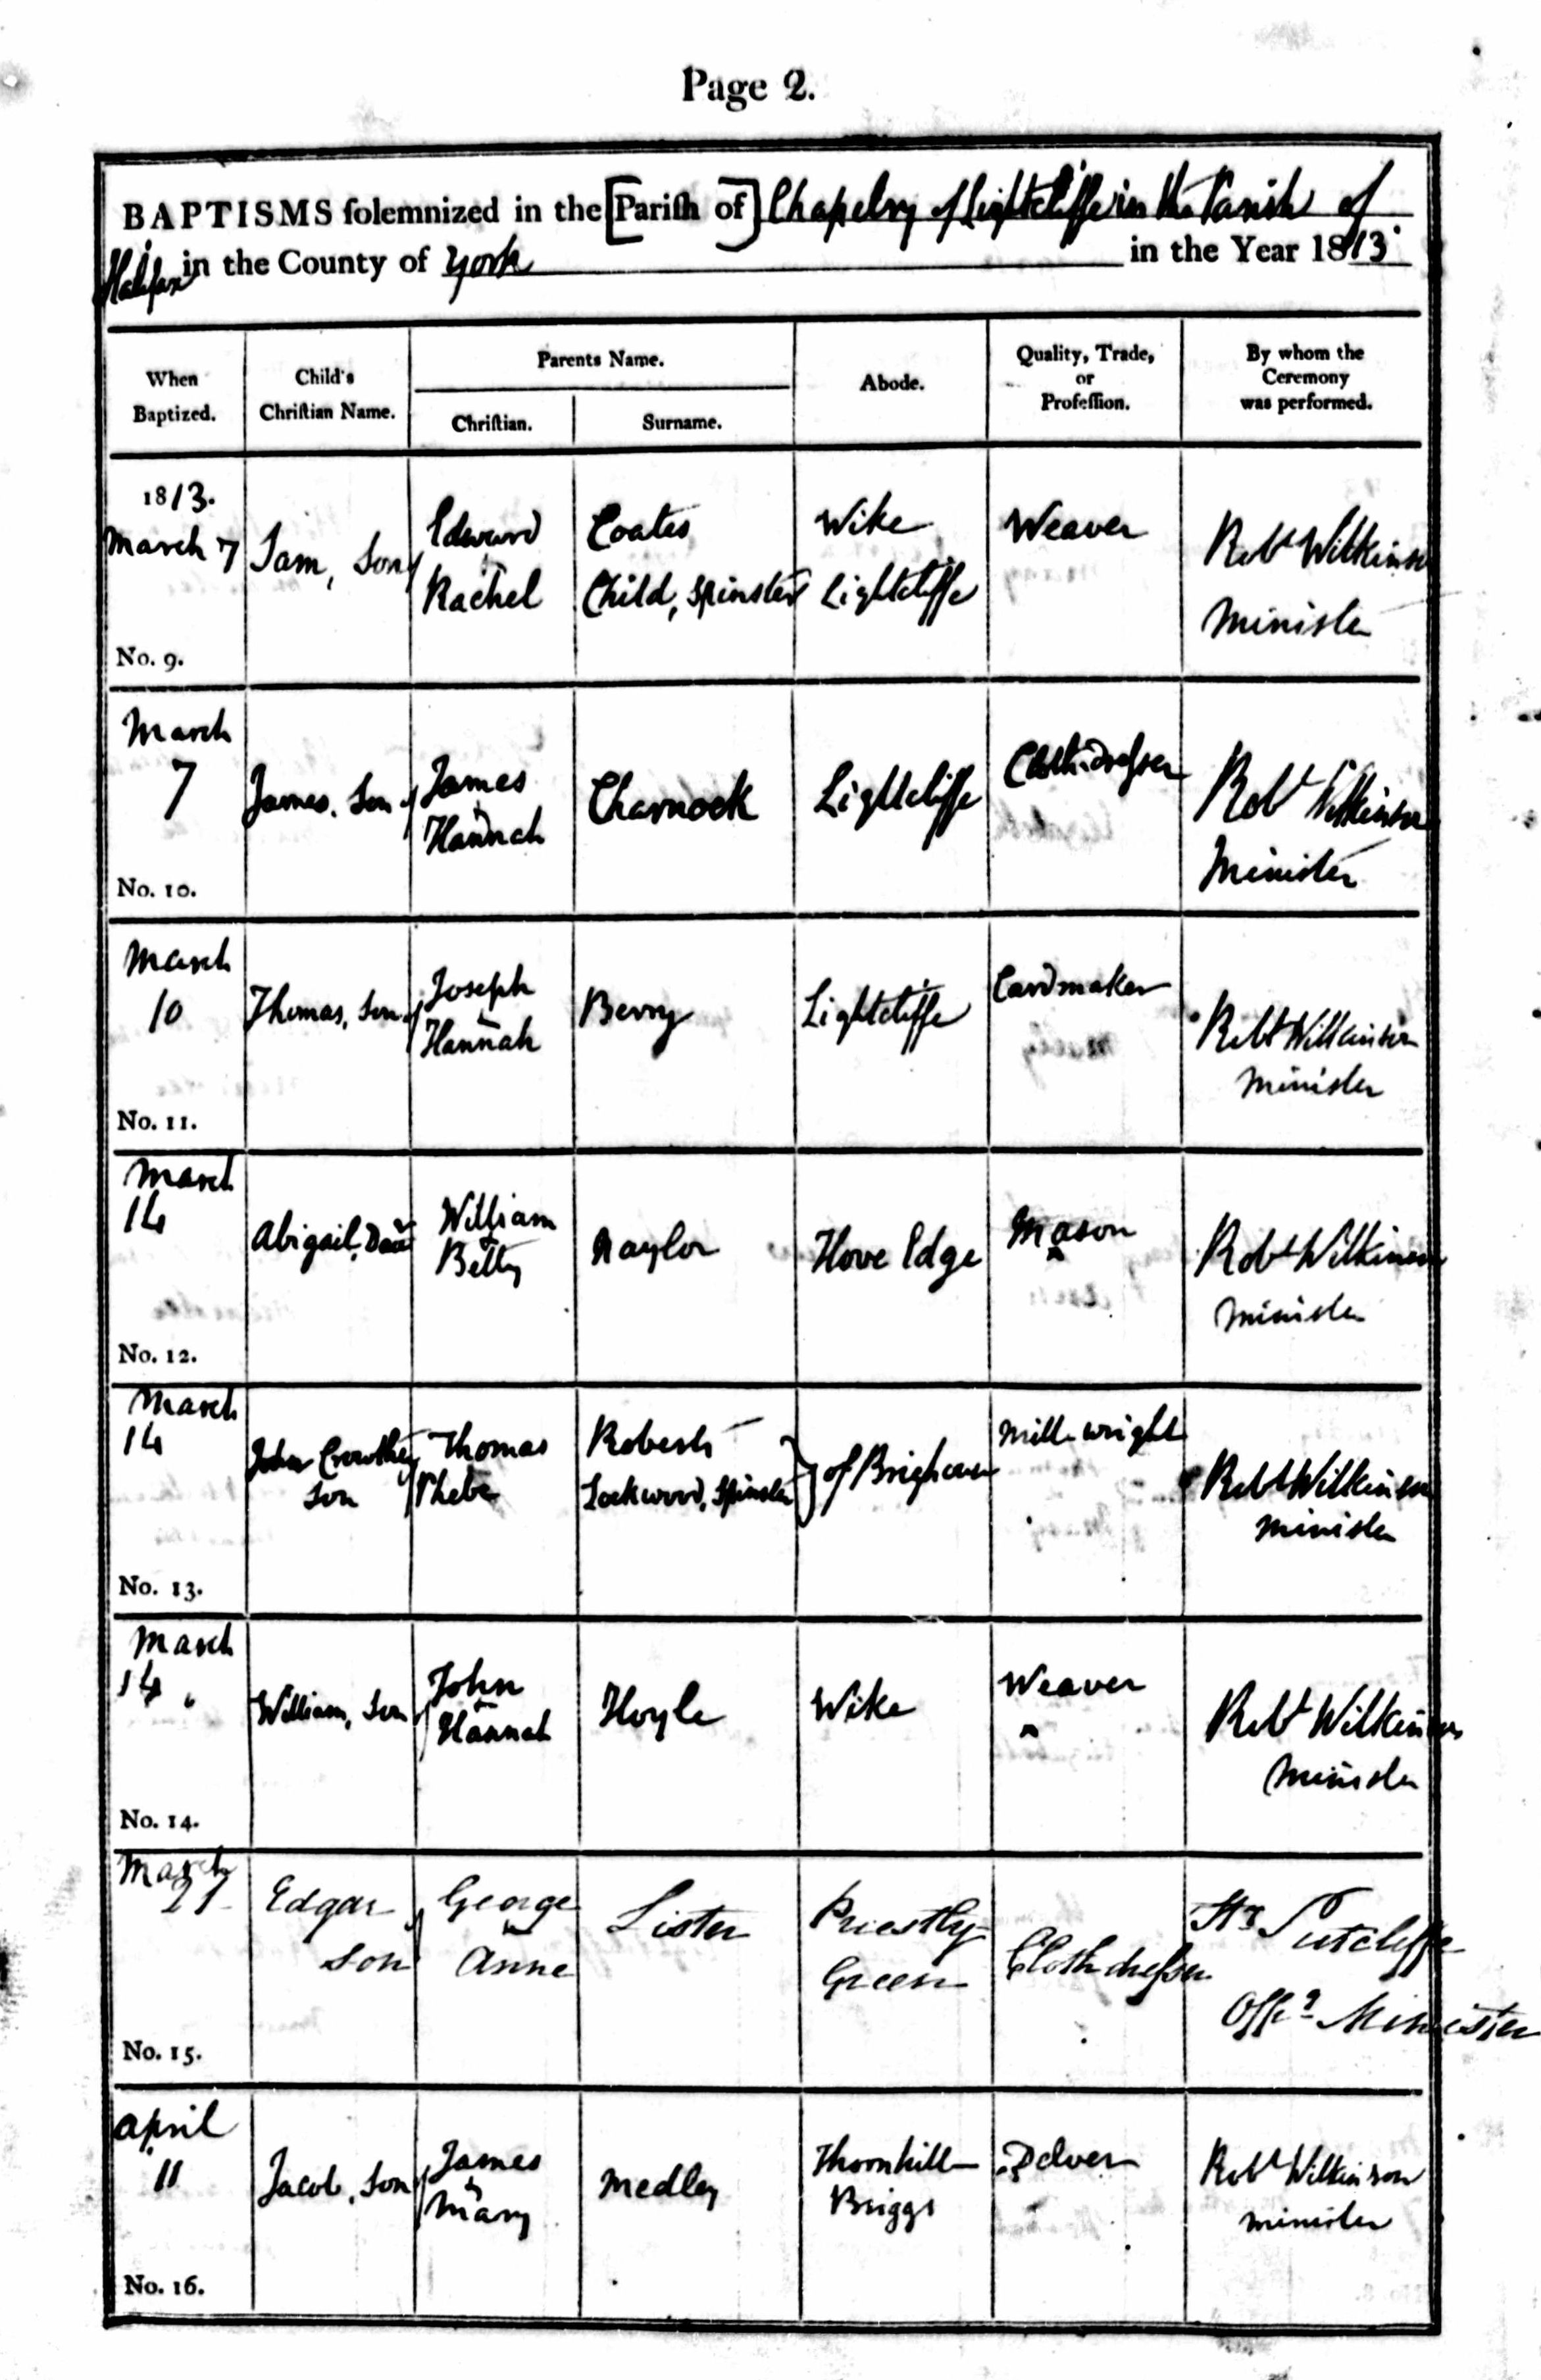 Page 2.
BAPTISMS solemnized in the [Parish of] Chapelry of Lightcliffe in the Parish of
Halifax in the County of York in the Year 1813
When Baptized.
Child's Christian Name.
Parents Name.
Christian.
Surname.
Abode.
Quality, Trade, or Profession.
By whom the Ceremony was performed.
1813.
March 7
Sam, Son of
Edward
Rachel
Coates
Child, Spinster
Wike
Lightcliffe
Weaver
Robt Wilkinson
Minister
No. 9.
March
7
James. Son of
James
&
Hannah
Charnock
Lightcliffe
Clothdresser
Robt Wilkinson
Minister
No. 10.
March
10
Thomas, Son of
Joseph
&
Hannah
Berry
Lightcliffe
Cardmaker
Robt Wilkinson
Minister
No. 11.
March
14
Abigail, Daur
William
&
Betty
Naylor
Hove Edge
Mason
Robt Wilkinson
Minister
No. 12.
March
14
John Crowther
Son of
Thomas
Phebe
Roberts
Lockwood, Spinster
of Brighouse
Mill-wright
Robt Wilkinson
Minister
No. 13.
March
14
William, Son of
John
&
Hannah
Hoyle
Wike
Weaver
Robt Wilkinson
Minister
No. 14.
March
21
Edgar
Son of
George
&
Anne
Lister
Priestly
Green
Clothdresser
Sutcliffe
Offg Minister
No. 15.
April
11
Jacob, Son of
James
&
Mary
Medley
Thornhill
Briggs
Delver
Robt Wilkinson
Minister
No. 16.